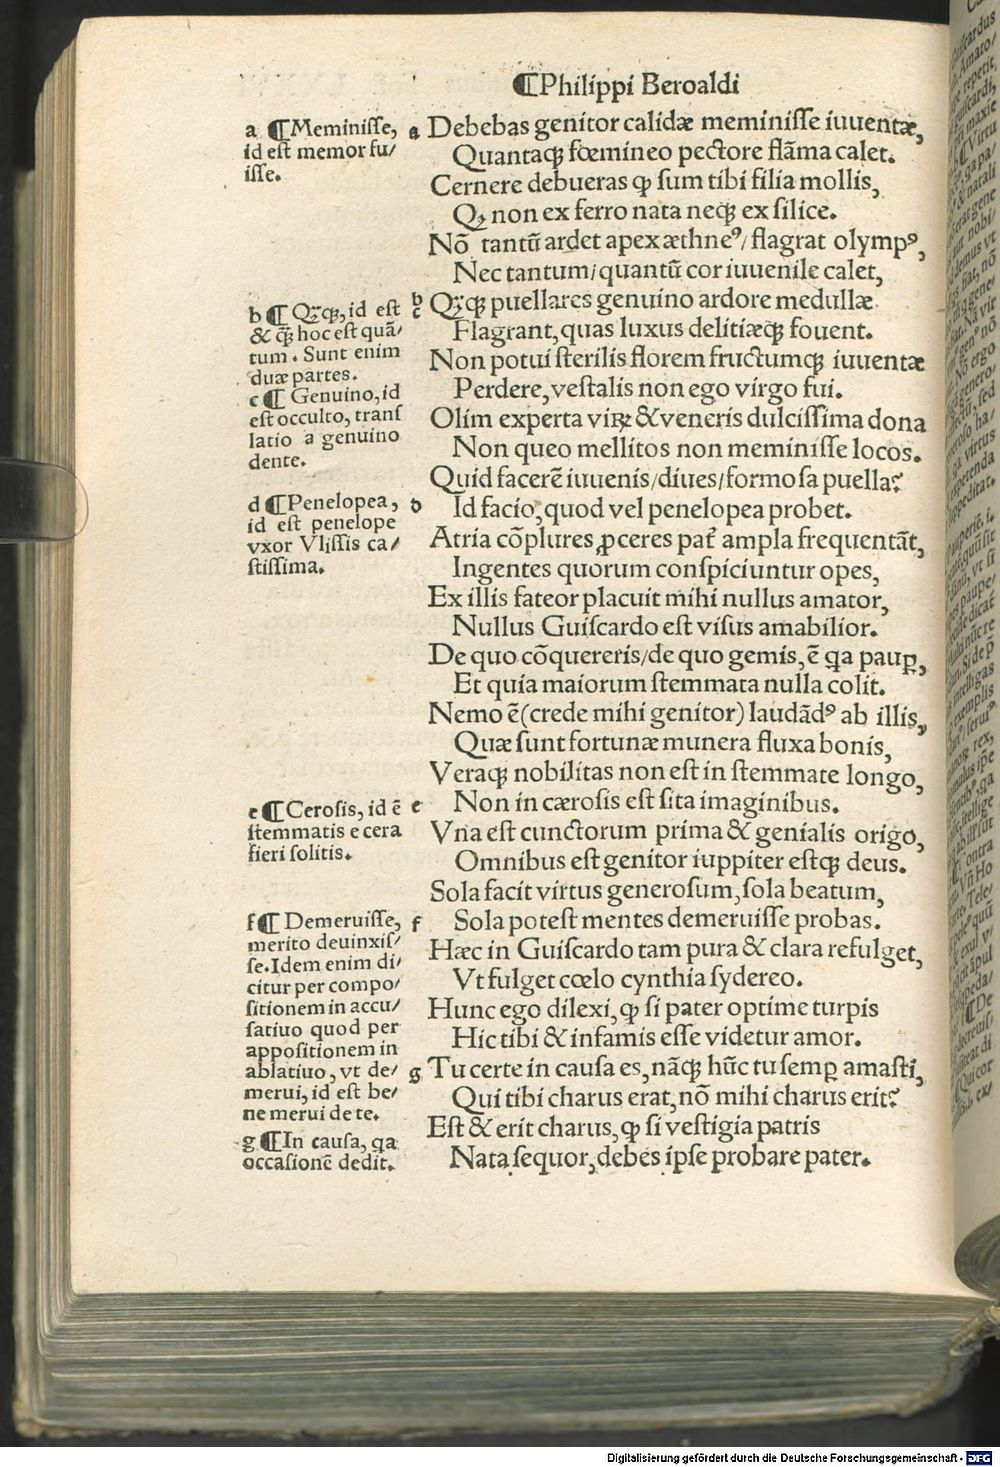 ¶Philippi Beroaldi
a ¶Meminisse,
id est memor fu/
isse.
b ¶ Qꝫqꝫ, id est
& qȝ̃ hoc est quã/
tum. Sunt enim
duæ partes.
c ¶ Genuino, id
est occulto, trans
latio a genuino
dente.
d ¶Penelopea,
id est penelope
vxor Vlissis ca/
stissima.
e ¶Cerosis, id ē
stemmatis e cera
fieri solitis.
f ¶ Demeruisse,
merito deuinxis/
se. Idem enim di/
citur per compo/
sitionem in accu/
satiuo quod per
appositionem in
ablatiuo, vt de/
merui, id est be/
ne merui de te.
g ¶In causa, qa
occasionē dedit.
a Debebas genitor calidæ meminisse iuuentæ,
Quantaqꝫ fœmineo pectore flãma calet.
Cernere debueras ꝙ sum tibi filia mollis,
Qꝫ non ex ferro nata neqꝫ ex silice.
Nõ tantũ ardet apex æthneꝰ/ flagrat olympꝰ,
Nec tantum/quantũ cor iuuenile calet,
b c Qꝫqꝫ puellares genuino ardore medullæ
Flagrant, quas luxus delitiæqꝫ fouent.
Non potui sterilis florem fructumqꝫ iuuentæ
Perdere, vestalis non ego virgo fui.
Olim experta viꝝ & veneris dulcissima dona
Non queo mellitos non meminisse locos.
Quid facerē iuuenis/diues/formosa puella?
d Id facio, quod vel penelopea probet.
Atria cõplures ꝓceres pat̃ ampla frequentãt,
Ingentes quorum conspiciuntur opes,
Ex illis fateor placuit mihi nullus amator,
Nullus Guiscardo est visus amabilior.
De quo cõquereris/de quo gemis, ē qa pauꝑ,
Et quia maiorum stemmata nulla colit.
Nemo ē(crede mihi genitor) laudãdꝰ ab illis,
Quæ sunt fortunæ munera fluxa bonis,
Veraqꝫ nobilitas non est in stemmate longo,
e Non in cærosis est sita imaginibus.
Vna est cunctorum prima & genialis origo,
Omnibus est genitor iuppiter estqꝫ deus.
Sola facit virtus generosum, sola beatum,
f Sola potest mentes demeruisse probas.
Hæc in Guiscardo tam pura & clara refulget,
Vt fulget cœlo cynthia sydereo.
Hunc ego dilexi, ꝙ si pater optime turpis
Hic tibi & infamis esse videtur amor.
g Tu certe in causa es, nãqꝫ hũc tu semꝑ amasti,
Qui tibi charus erat, nõ mihi charus erit?
Est & erit charus, ꝙ si vestigia patris
Nata sequor, debes ipse probare pater.
Digitalisierung gefördert durch die Deutsche Forschungsgemeinschaft - DFG